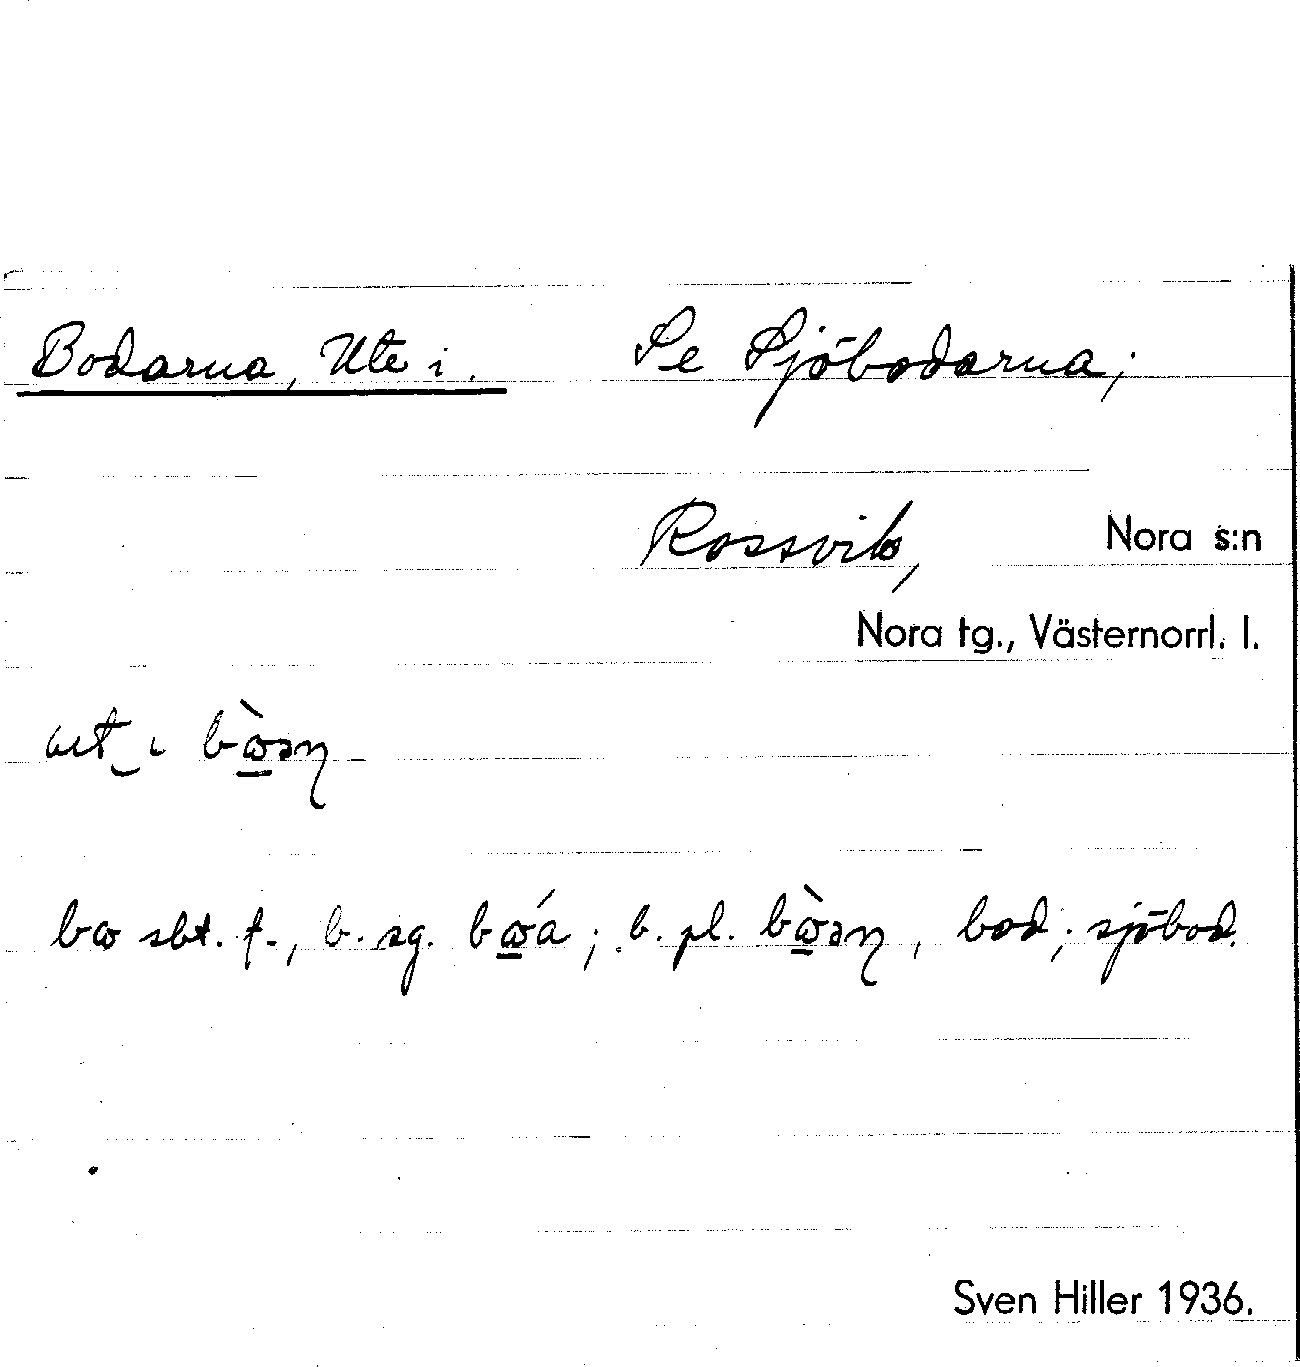 Bodarna, Ute i. Se Sjöbodarna;
Rossvik, Nora s:n
Nora tg., Västernorrl. l.
ut i bꝏ̀əɳ
bꝏ sbt. f., b. sg. bꝏ́a; b. pl. bꝏ̀əɳ, bod; sjöbod.
Sven Hiller 1936.